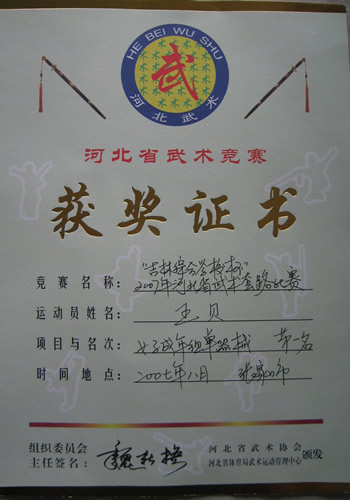 HE BEI WU SHU
武
河北武术
河北省武术竞赛
获奖证书
"吉林综合学校杯"
竞赛名称：2007年河北省武术套路比赛
运动员姓名：王贝
项目与名次：女子成年组单器械 第一名
时间地点：二00七年八月 张家口市
组织委员会
主任签名：
河北省武术协会
河北省体育局武术运动管理中心 颁发